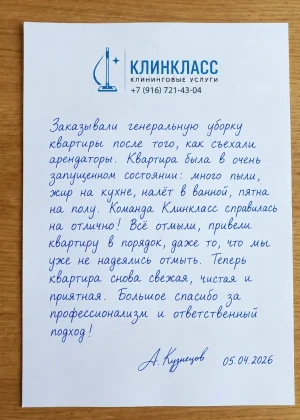 КЛИНКЛАСС
КЛИНИНГОВЫЕ УСЛУГИ
+7 (916) 721-43-04
Заказывали генеральную уборку
квартиры после того, как съехали
арендаторы. Квартира была в очень
запущенном состоянии: много пыли,
жир на кухне, налёт в ванной, пятна
на полу. Команда Клинкласс справилась
на отлично! Всё отмыли, привели
квартиру в порядок, даже то, что мы
уже не надеялись отмыть. Теперь
квартира снова свежая, чистая и
приятная. Большое спасибо за
профессионализм и ответственный
подход!
А. Кузнецов 05.04.2026